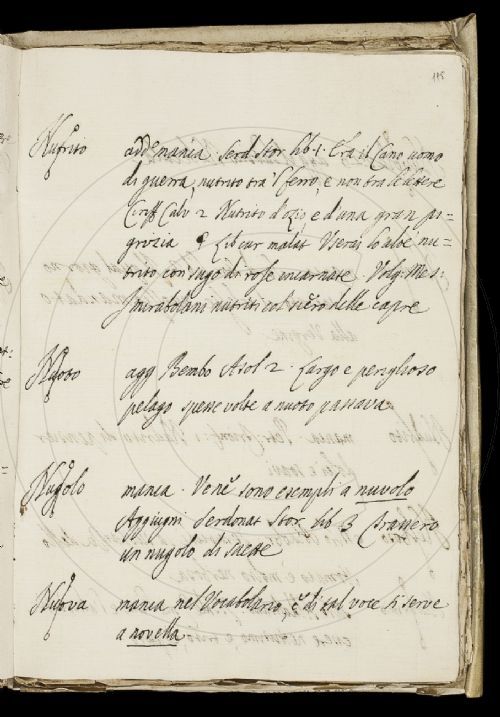 115
Nutrito add: manca. Serd. Stor. lib. 1. Era il Cano uomo
di guerra nutrito tra 'l ferro, e non tra le lettere
Ciriff. Calv. 2 Nutrito d'ozio e d'una gran pi=
grizia & Lib. cur. malat. Userai lo aloè nu=
trito con sugo di rose incarnate. Volg. Mes:
i mirabolani nutriti col siero delle capre
Nuoto agg. Bembo Asol. 2. Largo e periglioso
pelago spesse volte a nuoto passava
Nugolo manca. Ven'è sono esempli a nuvolo
Aggiugni Serdonat. Stor. lib. 3 Trassero
un nugolo di saette
Nuova manca nel Vocabolario, e di tal voce si serve
a novella